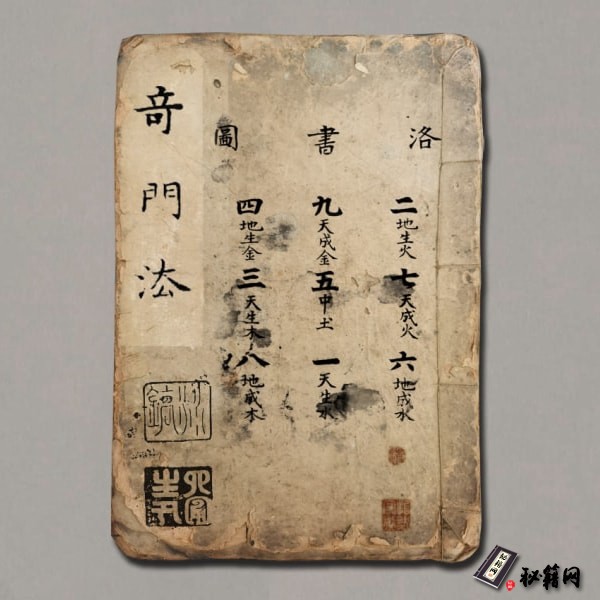 洛書圖
二地生火七天成火六地成水
九天成金五中土一天生水
四地生金三天生木八地成木
竒門法
秘籍网